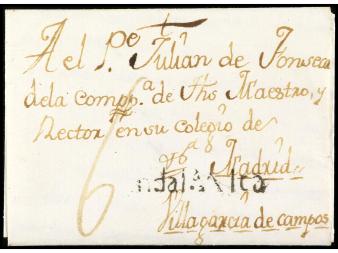 A el P.e Julian de Fonseca
dela Comp.a de Jhs Maestro, y
Rector en su colegio de
6
Madrid
ndal.a Alta
Villagarcia de campos